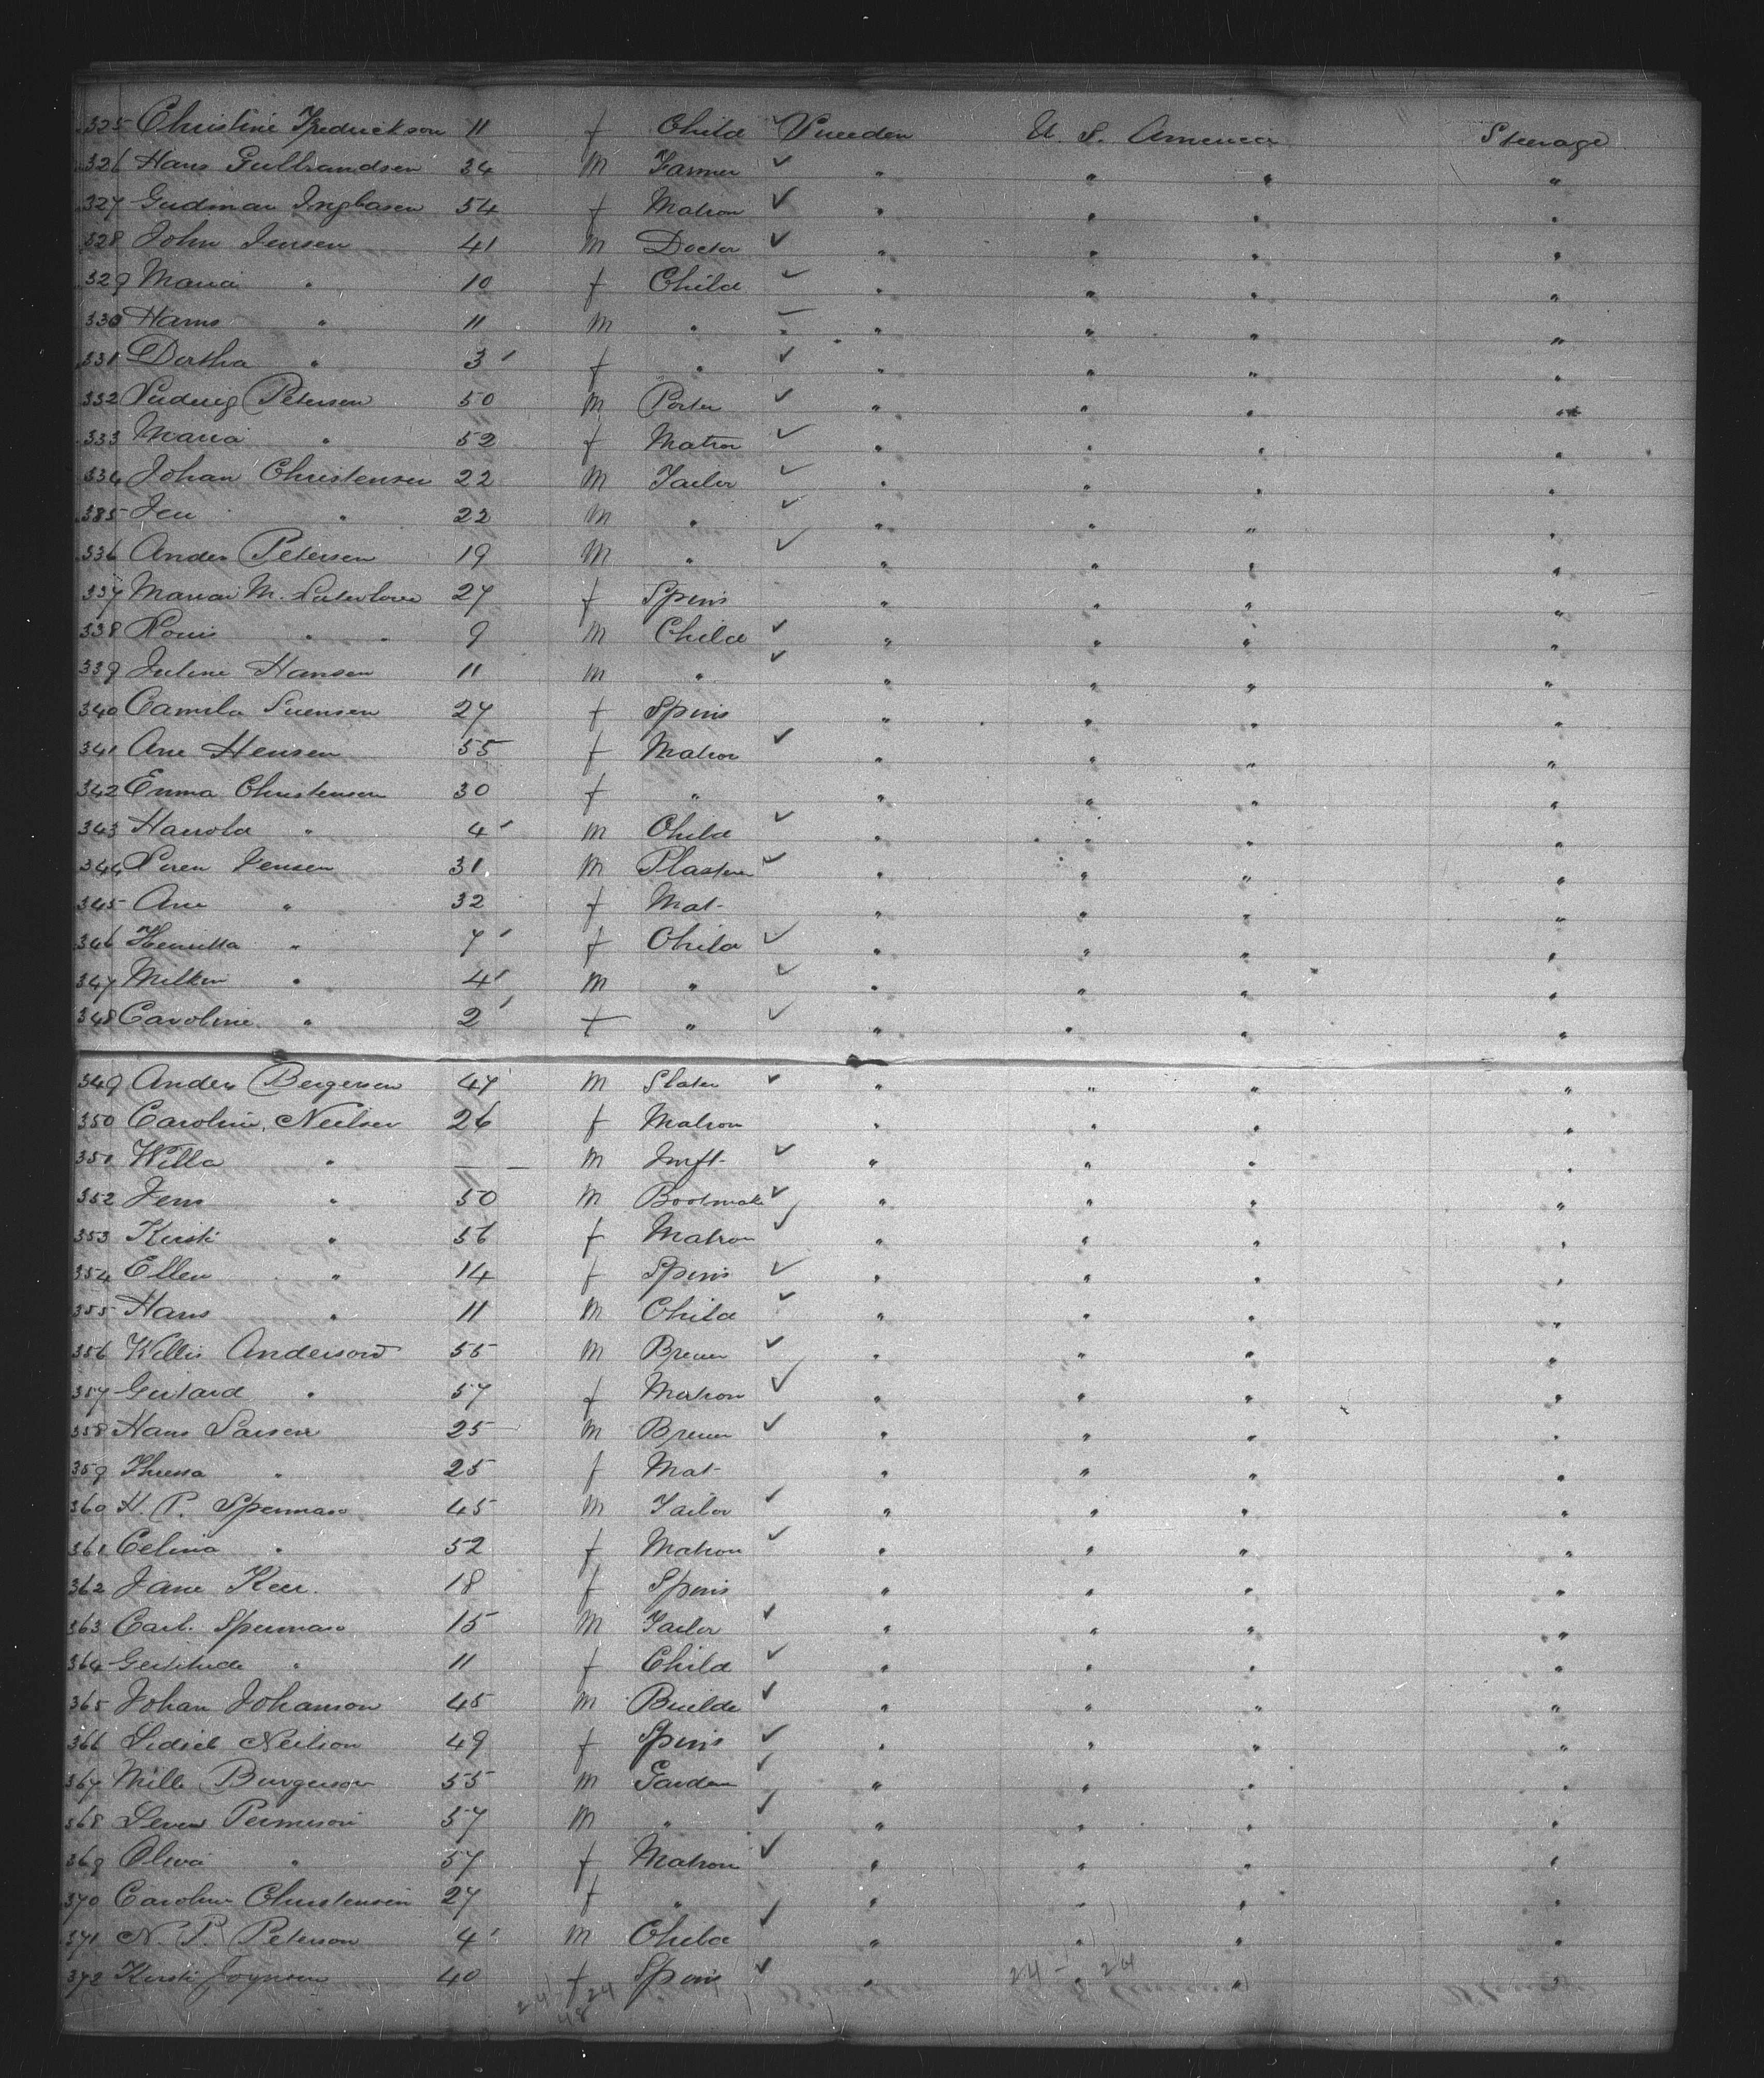 325 Christine Fredrickson 11 f Child ✓ Sweeden U. S. America Steerage
326 Hans Gulbrandsen 34 m Farmer ✓ " " " "
327 Gudmar Ingbasen 54 f Matron ✓ " " " "
328 John Jensen 41 m Doctor ✓ " " " "
329 Maria " 10 f Child ✓ " " " "
330 Hans " 11 m " " " " "
331 Dortha " 3 f " ✓ " " " "
332 Ludwig Petersen 50 m Porter ✓ " " " "
333 Maria " 52 f Matron ✓ " " " "
334 Johan Christensen 22 m Tailor ✓ " " " "
335 Jen " 22 m " ✓ " " " "
336 Anders Petersen 19 m " ✓ " " " "
337 Maria M. 27 f Spins " " " "
338 Louis " " 9 m Child ✓ " " " "
339 Juline Hansen 11 m " ✓ " " " "
340 Camila Suensen 27 f Spins " " " "
341 Ane Hensen 55 f Matron ✓ " " " "
342 Emma Christensen 30 f " " " " "
343 Harrold " 4 m Child ✓ " " " "
344 Soren Jensen 31 m Plasterer ✓ " " " "
345 Ane " 32 f Mat- " " " "
346 Henrietta " 7 f Child ✓ " " " "
347 Milken " 4 m " ✓ " " " "
348 Caroline " 2 f " ✓ " " " "
349 Anders Bergersen 47 m Slater ✓ " " " "
350 Caroline Neilsen 26 f Matron " " " "
351 Willa " — — m Inft- ✓ " " " "
352 Jens " 50 m Bootmake ✓ " " " "
353 Kirsti " 56 f Matron ✓ " " " "
354 Ellen " 14 f Spins ✓ " " " "
355 Hans " 11 m Child ✓ " " " "
356 Willis Anderson 55 m Brewer ✓ " " " "
357 Gertard " 57 f Matron ✓ " " " "
358 Hans Larsen 25 m Brewer ✓ " " " "
359 Thressa " 25 f Mat- " " " "
360 H. P. Spermaso 45 m Tailor ✓ " " " "
361 Celina " 52 f Matron ✓ " " " "
362 Jane Keer 18 f Spins " " " "
363 Carl Spermaso 15 m Tailor ✓ " " " "
364 Gertitude " 11 f Child ✓ " " " "
365 Johan Johanson 45 m Builde ✓ " " " "
366 Neilson 49 f Spins ✓ " " " "
367 Mills Burgerson 55 m Garden ✓ " " " "
368 57 m " ✓ " " " "
369 Oliva " 57 f Matron ✓ " " " "
370 Caroline Christensen 27 f " " " " "
371 N. P. Peterson 4 m Child ✓ " " " "
372 Kirsti Joynson 40 f Spins ✓ " " " "
24 24 24 - 24
48